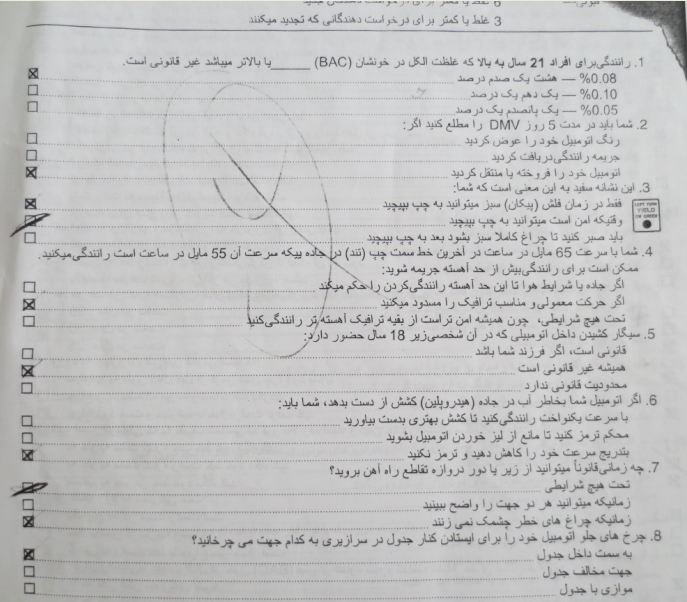 6 غلط یا کمتر برای درخواست دهندگان جدید
3 غلط یا کمتر برای درخواست دهندگانی که تجدید میکنند
1. رانندگی برای افراد 21 سال به بالا که غلظت الکل در خونشان (BAC) ______ یا بالاتر میباشد غیر قانونی است.
%0.08 — هشت یک صدم درصد
%0.10 — یک دهم یک درصد
%0.05 — یک پانصدم یک درصد
2. شما باید در مدت 5 روز DMV را مطلع کنید اگر:
رنگ اتومبیل خود را عوض کردید
جریمه رانندگی دریافت کردید
اتومبیل خود را فروخته یا منتقل کردید
3. این نشانه سفید به این معنی است که شما:
LEFT TURN YIELD ON GREEN
فقط در زمان فلش (پیکان) سبز میتوانید به چپ بپیچید
وقتیکه امن است میتوانید به چپ بپیچید
باید صبر کنید تا چراغ کاملا سبز بشود بعد به چپ بپیچید
4. شما با سرعت 65 مایل در ساعت در آخرین خط سمت چپ (تند) در جاده ییکه سرعت آن 55 مایل در ساعت است رانندگی میکنید.
ممکن است برای رانندگی بیش از حد آهسته جریمه شوید:
اگر جاده یا شرایط هوا تا این حد آهسته رانندگی کردن را حکم میکند
اگر حرکت معمولی و مناسب ترافیک را مسدود میکنید
تحت هیچ شرایطی، چون همیشه امن تر است از بقیه ترافیک آهسته تر رانندگی کنید
5. سیگار کشیدن داخل اتومبیلی که در آن شخصی زیر 18 سال حضور دارد:
قانونی است، اگر فرزند شما باشد
همیشه غیر قانونی است
محدودیت قانونی ندارد
6. اگر اتومبیل شما بخاطر آب در جاده (هیدروپلین) کشش از دست بدهد، شما باید:
با سرعت یکنواخت رانندگی کنید تا کشش بهتری بدست بیاورید
محکم ترمز کنید تا مانع از لیز خوردن اتومبیل بشوید
بتدریج سرعت خود را کاهش دهید و ترمز نکنید
7. چه زمانی قانوناً میتوانید از زیر یا دور دروازه تقاطع راه آهن بروید؟
تحت هیچ شرایطی
زمانیکه میتوانید هر دو جهت را واضح ببینید
زمانیکه چراغ های خطر چشمک نمی زنند
8. چرخ های جلو اتومبیل خود را برای ایستادن کنار جدول در سرازیری به کدام جهت می چرخانید؟
به سمت داخل جدول
جهت مخالف جدول
موازی با جدول